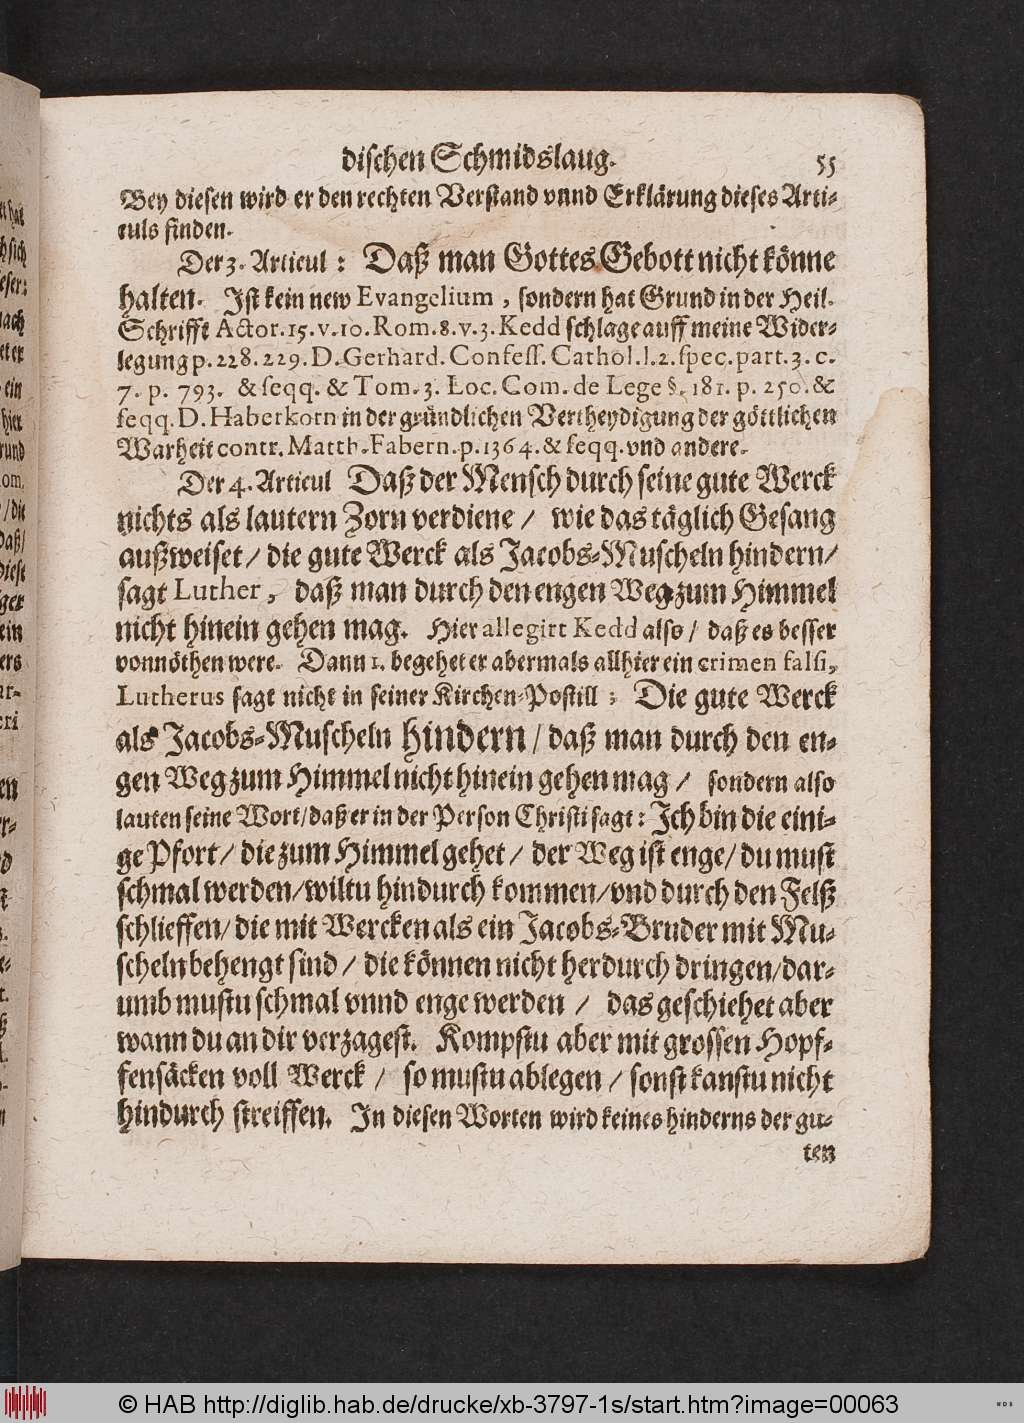 dischen Schmidslaug. 55
Bey diesen wird er den rechten Verstand vnnd Erklärung dieses Arti-
culs finden.
Der 3. Articul: Daß man Gottes Gebott nicht könne
halten. Ist kein new Evangelium, sondern hat Grund in der Heil.
Schrifft Actor. 15. v. 10. Rom. 8. v. 3. Kedd schlage auff meine Wider-
legung p. 228. 229. D. Gerhard. Confess. Cathol. l. 2. spec. part. 3. c.
7. p. 793. & seqq. & Tom. 3. Loc. Com. de Lege §. 181. p. 250. &
seqq. D. Haberkorn in der gründlichen Vertheydigung der göttlichen
Warheit contr. Matth. Fabern. p. 1364. & seqq. vnd andere.
Der 4. Articul Daß der Mensch durch seine gute Werck
nichts als lautern Zorn verdiene / wie das täglich Gesang
außweiset / die gute Werck als Jacobs-Muscheln hindern /
sagt Luther, daß man durch den engen Weg zum Himmel
nicht hinein gehen mag. Hier allegirt Kedd also / daß es besser
vonnöthen were. Dann 1. begehet er abermals allhier ein crimen falsi,
Lutherus sagt nicht in seiner Kirchen-Postill: Die gute Werck
als Jacobs-Muscheln hindern / daß man durch den en-
gen Weg zum Himmel nicht hinein gehen mag / sondern also
lauten seine Wort / daß er in der Person Christi sagt: Ich bin die eini-
ge Pfort / die zum Himmel gehet / der Weg ist enge / du must
schmal werden / wiltu hindurch kommen / vnd durch den Felß
schlieffen / die mit Wercken als ein Jacobs-Bruder mit Mu-
scheln behengt sind / die können nicht herdurch dringen / dar-
umb mustu schmal vnnd enge werden / das geschiehet aber
wann du an dir verzagest. Kompstu aber mit grossen Hopf-
fensäcken voll Werck / so mustu ablegen / sonst kanstu nicht
hindurch streiffen. In diesen Worten wird keines hinderns der gu-
ten
© HAB http://diglib.hab.de/drucke/xb-3797-1s/start.htm?image=00063